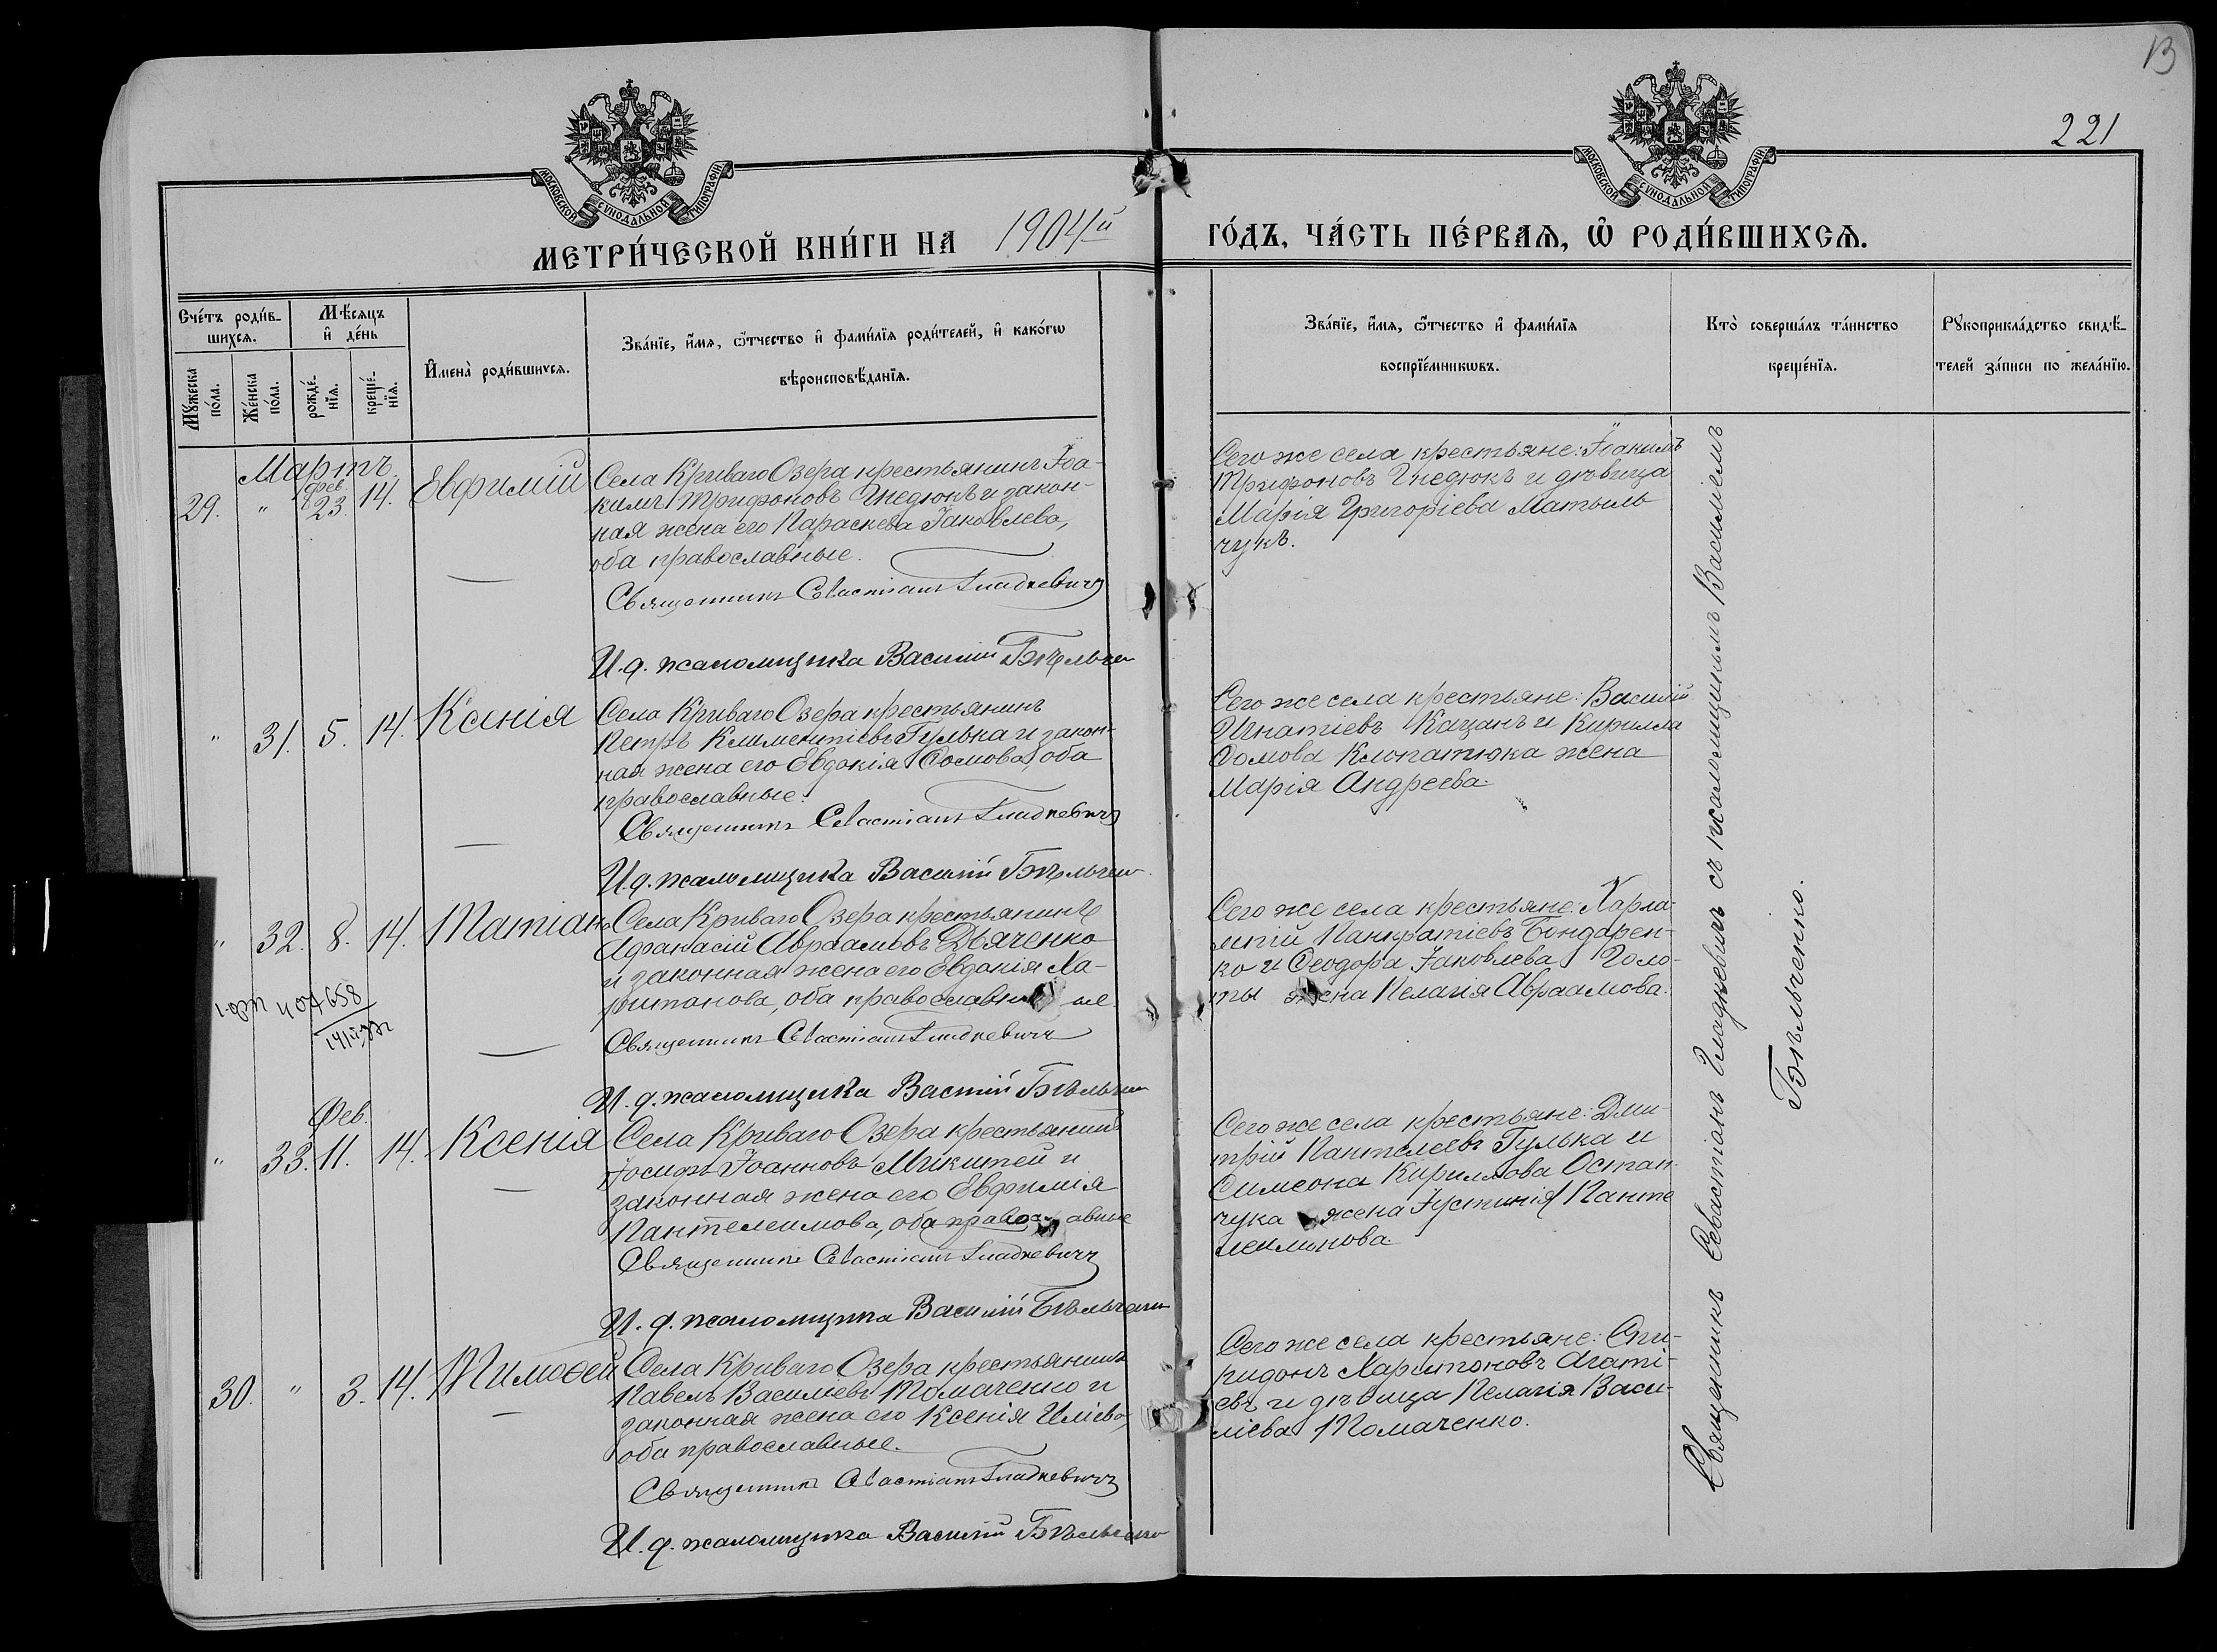 13
221
МОСКОВСКОЙ СѴНОДАЛЬНОЙ ТИПОГРАФІИ.
МОСКОВСКОЙ СѴНОДАЛЬНОЙ ТИПОГРАФІИ.
МЕТРИ́ЧЕСКОЙ КНИ́ГИ НА 1904й ГО́ДЪ, ЧА́СТЬ ПЕ́РВАѦ, Ѽ РОДИ́ВШИХСѦ.
Сче́тъ роди́в-
шихсѧ.
Мѣ́сѧцъ
и҆ де́нь
Мꙋ́жеска
по́ла.
Же́нска
по́ла.
рожде́-
нїѧ.
креще́-
нїѧ.
И҆мена̀ роди́вшихсѧ.
Зва́нїе, и҆́мѧ, ѻ҆́тчество и҆ фами́лїѧ роди́телей, и҆ како́гѡ
вѣроисповѣ́данїѧ.
Зва́нїе, и҆́мѧ, ѻ҆́тчество и҆ фами́лїѧ
воспрїе́мникѡвъ.
Кто̀ соверша́лъ та́инство
креще́нїѧ.
Рꙋкоприкла́дство свидѣ́-
телей за́писи по жела́нїю.
Мартъ.
29. " Фев. 23. 14. Евфимій
Села Криваго Озера крестьянинъ Іоа-
кимъ Трифоновъ Гнедюкъ и закон-
ная жена его Параскева Іаковлева,
оба православные.
Священникъ Севастіанъ Гладкевичъ
И. д. псаломщика Василій Бѣльчен
Сего же села крестьяне: Іоакимъ
Трифоновъ Гнедюкъ и дѣвица
Марія Григоріева Матыль
чукъ.
" 31. 5. 14. Ксенія
Села Криваго Озера крестьянинъ
Петръ Климентіевъ Гулька и закон-
ная жена его Евдокія Ѳомова, оба
православные.
Священникъ Севастіанъ Гладкевичъ
И. д. псаломщика Василій Бѣльчен
Сего же села крестьяне: Василій
Игнатіевъ Кацанъ и Кирилла
Ѳомова Клопатюка жена
Марія Андреева.
" 32. 8. 14. Татіана
Села Криваго Озера крестьянинъ
Аѳанасій Авраамовъ Дяченко
и законная жена его Евдокія Ха-
ритонова, оба православные
Священникъ Севастіанъ Гладкевичъ
И. д. псаломщика Василій Бѣльчен
Сего же села крестьяне: Харла-
мпій Панкратіевъ Бондарен-
ко и Ѳеодора Іаковлева Голо-
ты жена Пелагія Авраамова.
407658
Фев.
" 33. 11. 14. Ксенія
Села Криваго Озера крестьянинъ
Іосифъ Іоанновъ Микитей и
законная жена его Евфимія
Пантелеимова, оба православные
Священникъ Севастіанъ Гладкевичъ
И. д. псаломщика Василій Бѣльченк
Сего же села крестьяне: Дми-
трій Пантелеевъ Гулька и
Симеона Кириллова Остап-
чука жена Іустинія Панте
леимонова.
30. " 3. 14. Тимоѳей
Села Криваго Озера крестьянинъ
Павелъ Василіевъ Томаченко и
законная жена его Ксенія Иліева,
оба православные.
Священникъ Севастіанъ Гладкевичъ
И. д. псаломщика Василій Бѣльченко
Сего же села крестьяне: Спи-
ридонъ Харитоновъ Агаті-
евъ и дѣвица Пелагія Васи-
ліева Томаченко.
Священникъ Севастіанъ Гладкевичъ съ псаломщикомъ Василіемъ
Бѣльченко.